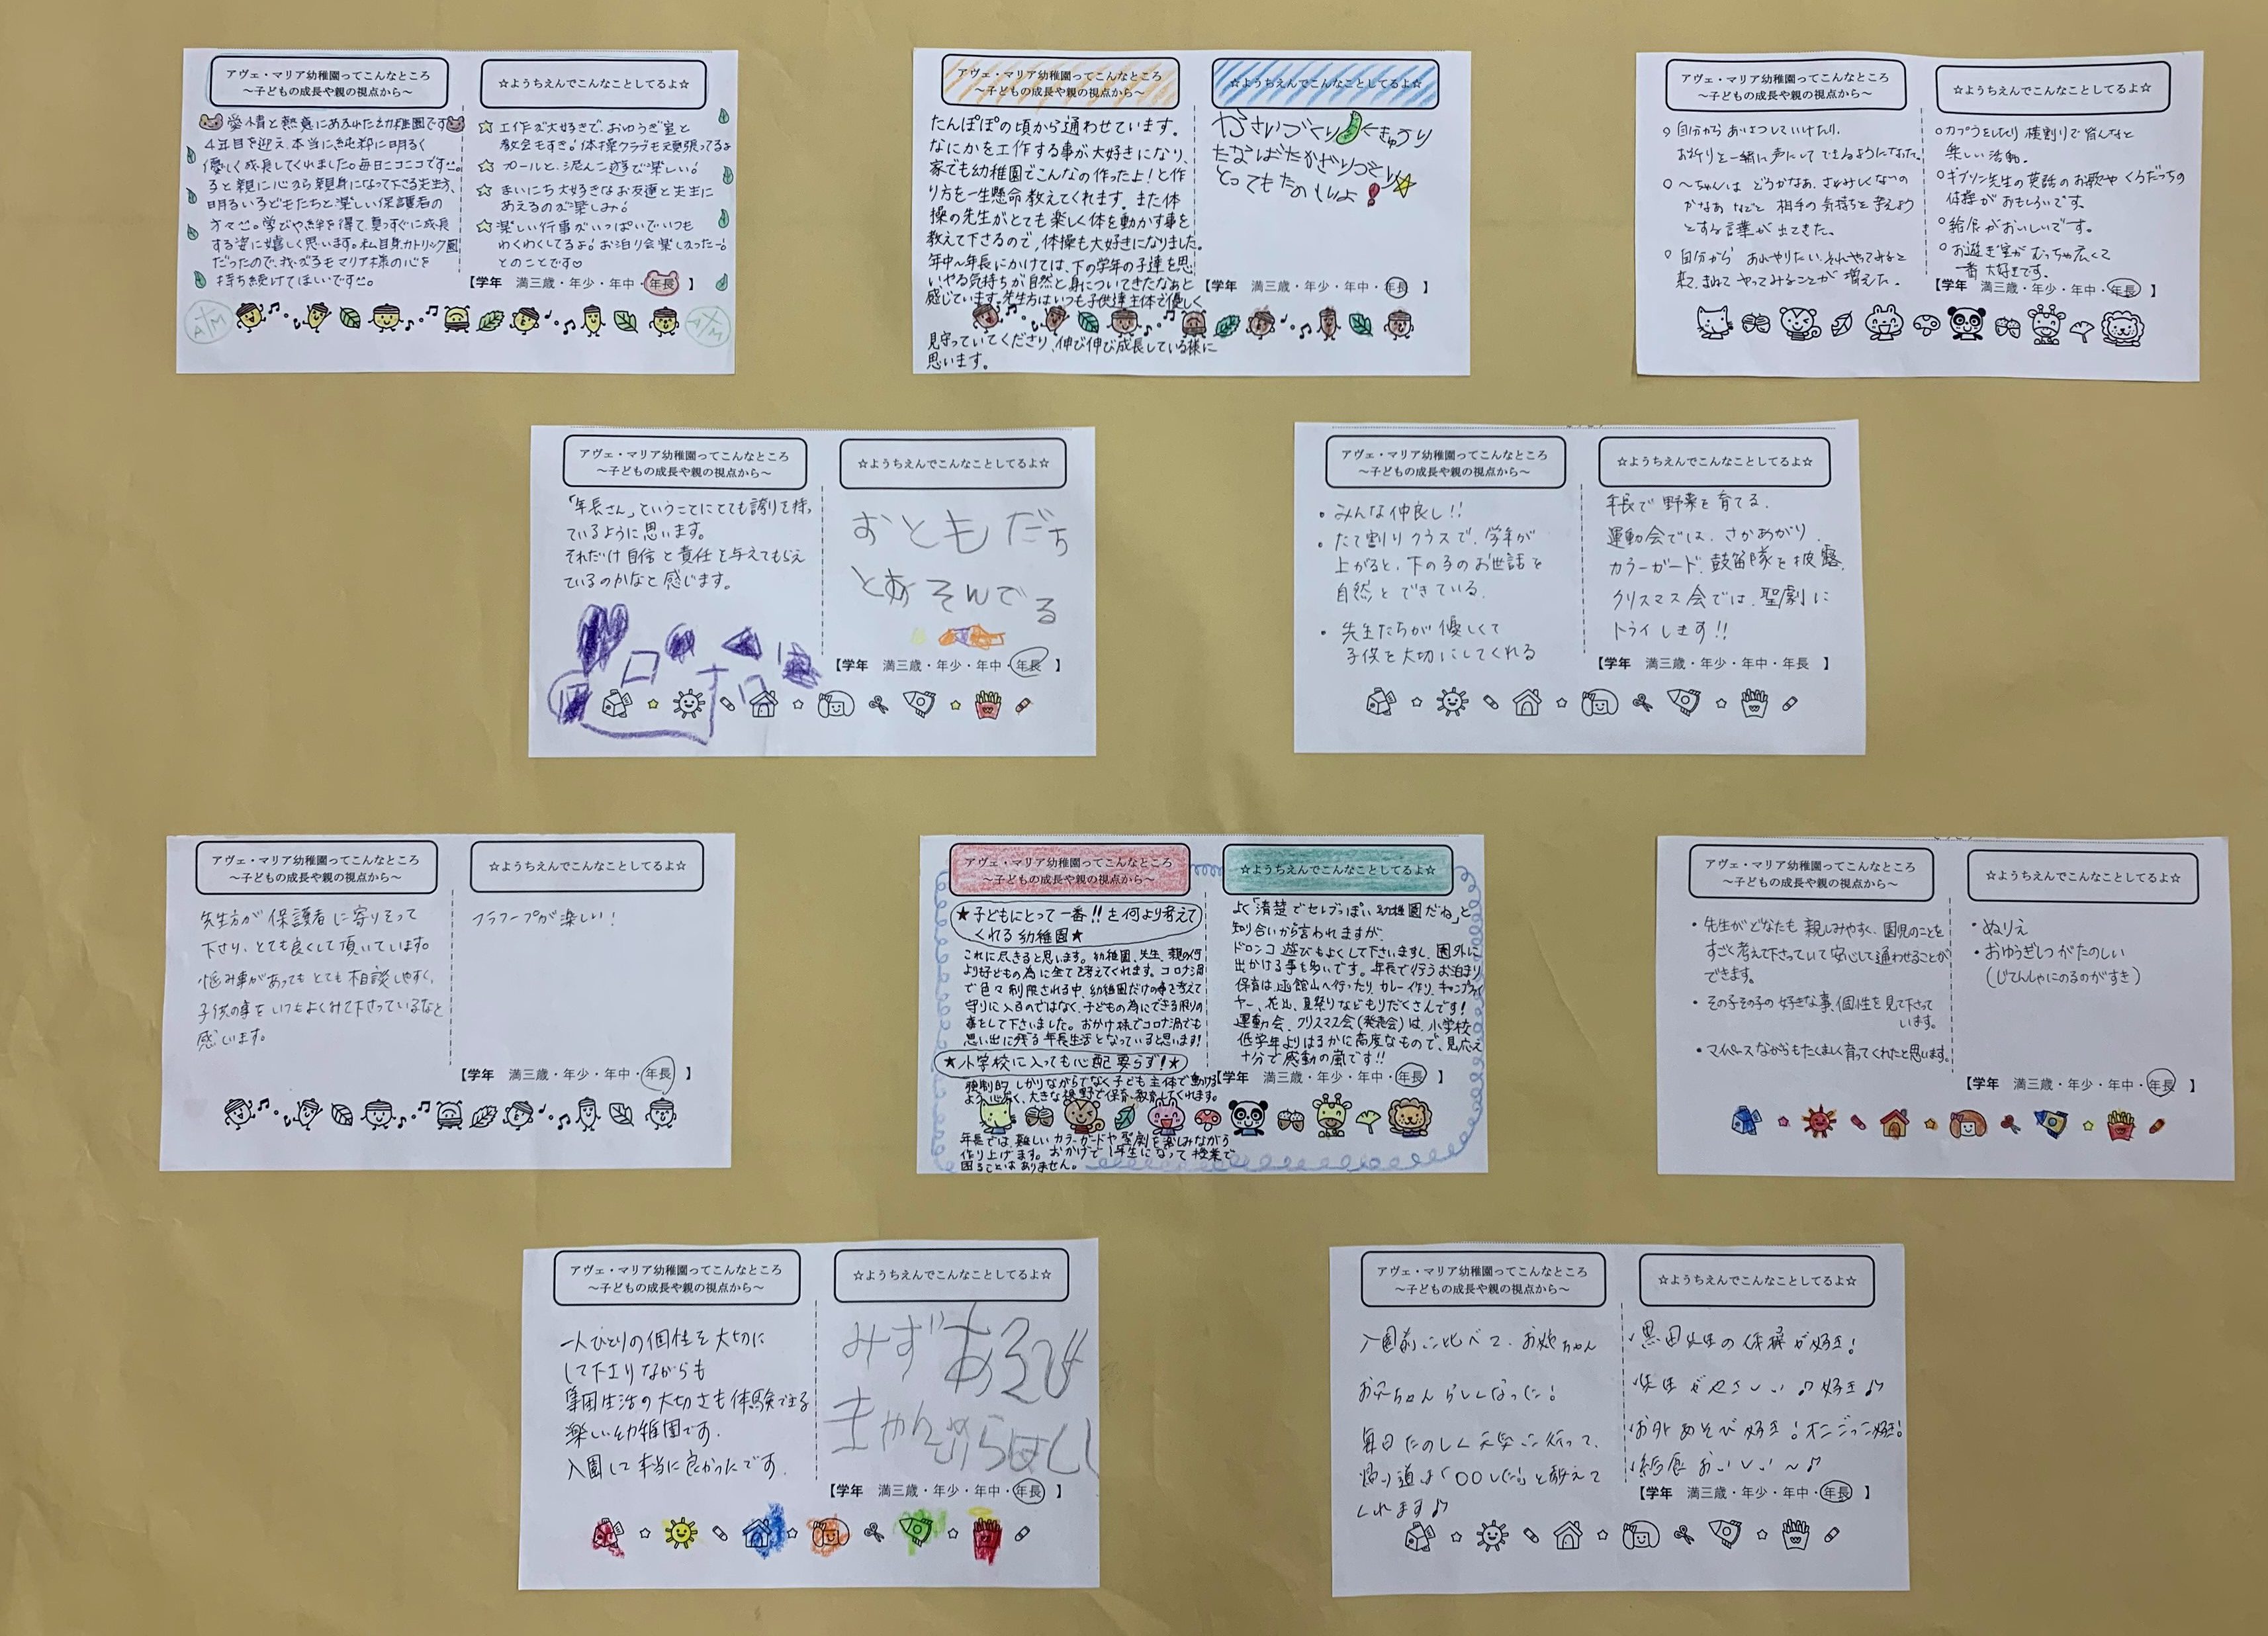 アヴェ・マリア幼稚園ってこんなところ
〜子どもの成長や親の視点から〜
愛情と熱意にあふれた幼稚園です
4年目を迎え、本当に純粋に明るく
優しく成長してくれました。毎日ニコニコです
子と親に心から親身になって下さる先生方、
明るい子どもたちと楽しい保護者の
方々。学びや絆を得て、真っすぐに成長
する姿に嬉しく思います。私自身カトリック園
だったので、我が子もマリア様の心を
持ち続けてほしいです
☆ようちえんでこんなことしてるよ☆
☆ 工作が大好きで、おゆうぎ室と
教会もすき!体操クラブも頑張ってるよ
☆ プールと、泥んこ遊び楽しい!
☆ まいにち大好きなお友達と先生に
あえるのが楽しみ!
☆ 楽しい行事がいっぱいでいつも
わくわくしてるよ!お泊り会楽しかったー!
とのことです♡
【学年 満三歳・年少・年中・年長 】
A M
A M
アヴェ・マリア幼稚園ってこんなところ
〜子どもの成長や親の視点から〜
たんぽぽの頃から通わせています。
なにかを工作する事が大好きになり、
家でも幼稚園でこんなの作ったよ!と作
り方を一生懸命教えてくれます。また体
操の先生がとても楽しく体を動かす事を
教えて下さるので、体操も大好きになりました。
年中〜年長にかけては、下の学年の子達を思
いやる気持ちが自然と身についてきたなぁと
感じています。先生方はいつも子供達主体で優しく
見守っていてくださり、伸び伸び成長している様に
思います。
☆ようちえんでこんなことしてるよ☆
やさいづくり ←きゅうり
たなばたかざりつくり
とってもたのしいよ!☆
【学年 満三歳・年少・年中・年長 】
アヴェ・マリア幼稚園ってこんなところ
〜子どもの成長や親の視点から〜
○ 自分からあいさつしていけたり、
お祈りを一緒に声にしてできるようになった。
○ 〜ちゃんは どうかなあ、さみしくないの
かなあ などと 相手の気持ちを考えよう
とする言葉が出てきた。
○ 自分から あれやりたい、それやってみると
まねて やってみることが 増えた。
☆ようちえんでこんなことしてるよ☆
○カプラをしたり 横割りで皆んなと
楽しい活動。
○ギブソン先生の英語のお歌や くるだっちの
体操がおもしろいです。
○給食がおいしいです。
○お遊ぎ室がむっちゃ広くて
一番 大好きです。
【学年 満三歳・年少・年中・年長 】
アヴェ・マリア幼稚園ってこんなところ
〜子どもの成長や親の視点から〜
「年長さん」ということにとても誇りを持っ
ているように思います。
それだけ自信と責任を与えてもらえ
ているのかなと感じます。
☆ようちえんでこんなことしてるよ☆
おともだち
とあそんでる
【学年 満三歳・年少・年中・年長 】
アヴェ・マリア幼稚園ってこんなところ
〜子どもの成長や親の視点から〜
・みんな仲良し!!
・たて割りクラスで、学年が
上がると、下の子のお世話を
自然とできている。
・先生たちが優しくて
子供を大切にしてくれる
☆ようちえんでこんなことしてるよ☆
年長で野菜を育てる。
運動会では、さかあがり、
カラーガード、鼓笛隊を披露。
クリスマス会では、聖劇に
トライします!!
【学年 満三歳・年少・年中・年長 】
アヴェ・マリア幼稚園ってこんなところ
〜子どもの成長や親の視点から〜
先生方が保護者に寄りそって
下さり、とても良くして頂いています。
悩み事があってもとても相談しやすく、
子供の事をいつもよくみて下さっているなと
感じます。
☆ようちえんでこんなことしてるよ☆
フラフープが楽しい!
【学年 満三歳・年少・年中・年長 】
アヴェ・マリア幼稚園ってこんなところ
〜子どもの成長や親の視点から〜
★子どもにとって一番!!を何より考えて
くれる幼稚園★
これに尽きると思います。幼稚園、先生、親の何
より子どもの為に全て考えてくれます。コロナ渦
で色々制限される中、幼稚園だけの事を考えて
守りに入るのではなく、子どもの為にできる限りの
事をして下さいました。おかげ様でコロナ渦でも
思い出に残る年長生活となっていると思います!
★小学校に入っても心配要らず!★
強制的、しかりながらでなく子ども主体で動ける
よう心広く、大きな視野で保育、教育してくれます。
年長では、難しいカラーガードや聖劇を楽しみながら
作り上げます。おかげで1年生になって授業で
困ることはありません。
☆ようちえんでこんなことしてるよ☆
よく「清楚でセレブっぽい幼稚園だね」と
知り合いから言われますが、
ドロンコ遊びもよくして下さいますし、園外に
出かける事も多いです。年長で行うお泊まり
保育は、函館山へ行ったり、カレー作り、キャンプファイ
ヤー、花火、夏祭りなどもりだくさんです!
運動会、クリスマス会(発表会)は、小学校
低学年よりはるかに高度なもので、見応え
十分で感動の嵐です!!
【学年 満三歳・年少・年中・年長 】
アヴェ・マリア幼稚園ってこんなところ
〜子どもの成長や親の視点から〜
・先生がどなたも親しみやすく、園児のことを
すごく考えて下さっていて安心して通わせることが
できます。
・その子その子の好きな事、個性を見て下さって
います。
・マイペースながらもたくましく育ってくれたと思います。
☆ようちえんでこんなことしてるよ☆
・ぬりえ
・おゆうぎしつがたのしい
(じてんしゃにのるのがすき)
【学年 満三歳・年少・年中・年長 】
アヴェ・マリア幼稚園ってこんなところ
〜子どもの成長や親の視点から〜
一人ひとりの個性を大切に
して下さりながらも
集団生活の大切さも体験できる
楽しい幼稚園です。
入園して本当に良かったです。
☆ようちえんでこんなことしてるよ☆
みずあそび
きゃんぷらはしし
【学年 満三歳・年少・年中・年長 】
アヴェ・マリア幼稚園ってこんなところ
〜子どもの成長や親の視点から〜
入園前に比べて、お姉ちゃん
お兄ちゃんらしくなった!
毎日たのしく元気に行って、
帰り道は「○○した」と教えて
くれます♪
☆ようちえんでこんなことしてるよ☆
・黒田先生の体操が好き!
・先生がやさしい♪好き♪
・お外あそび好き!オニごっこ好き!
・給食おいしい〜♪
【学年 満三歳・年少・年中・年長 】